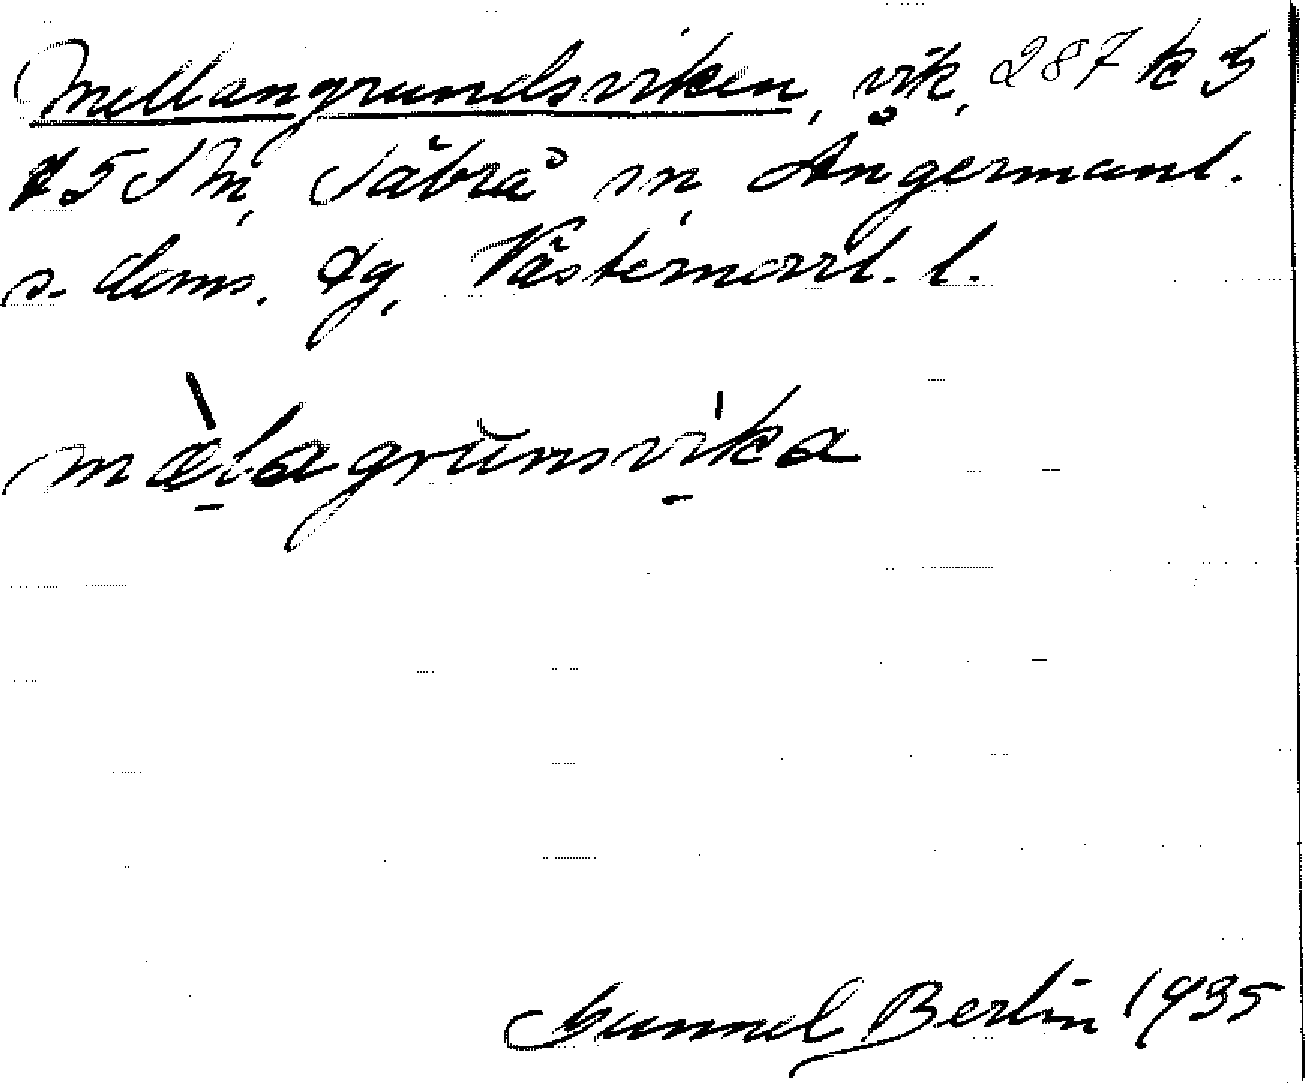 Mellangrundsviken, vik, 287 k 3
75 Sm, Säbrå sn, Ångermanl.
s. doms. dg, Västernorrl. l.
mæ̀lagrŭnsvika
Gunnel Berlin 1935